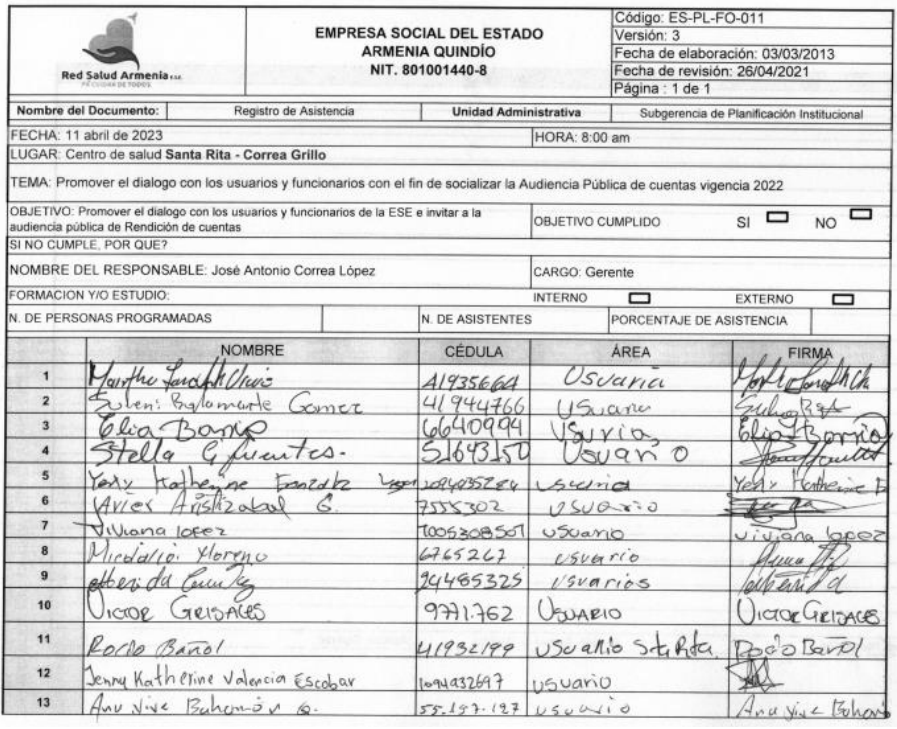 Red Salud Armenia E.S.E.
EMPRESA SOCIAL DEL ESTADO
ARMENIA QUINDÍO
NIT. 801001440-8
Código: ES-PL-FO-011
Versión: 3
Fecha de elaboración: 03/03/2013
Fecha de revisión: 26/04/2021
Página : 1 de 1
Nombre del Documento: Registro de Asistencia Unidad Administrativa Subgerencia de Planificación Institucional
FECHA: 11 abril de 2023 HORA: 8:00 am
LUGAR: Centro de salud Santa Rita - Correa Grillo
TEMA: Promover el dialogo con los usuarios y funcionarios con el fin de socializar la Audiencia Pública de cuentas vigencia 2022
OBJETIVO: Promover el dialogo con los usuarios y funcionarios de la ESE e invitar a la
audiencia pública de Rendición de cuentas
OBJETIVO CUMPLIDO SI NO
SI NO CUMPLE, POR QUE?
NOMBRE DEL RESPONSABLE: José Antonio Correa López CARGO: Gerente
FORMACION Y/O ESTUDIO: INTERNO EXTERNO
N. DE PERSONAS PROGRAMADAS N. DE ASISTENTES PORCENTAJE DE ASISTENCIA
NOMBRE CÉDULA ÁREA FIRMA
1 41935664 Usuaria
2 Gomez 41944766 Usuario
3 Elia Barrio 6640994 Usuria, Elia Barrio
4 Stella Cifuentes. 51643150 Usuario
5 Yesly Katherine usuaria Yesly Katherine
6 Aristizabal G. 7555302 usuario
7 Viviana lopez 1005308501 usuario viviana lopez
8 Moreno 6765267 usuario
9 24485325 usuarios
10 VICTOR GRISALES 9771.762 USUARIO VICTOR GRISALES
11 Rocio Bañol 41932199 usuario Sta Rta. Rocio Bañol
12 Jenny Katherine Valencia Escobar 1094932697 usuario
13 55.197.127 usuario